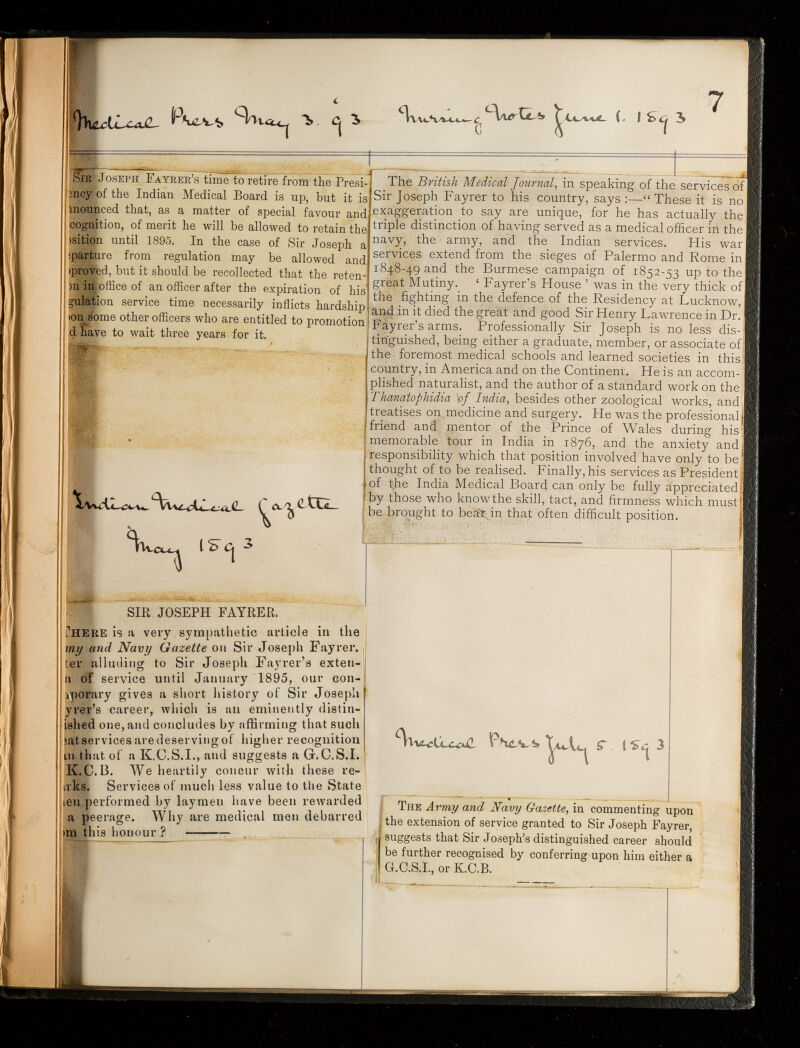 7
Medical Press May 3. 93
SIR JOSEPH FAYRER'S time to retire from the Presi-
ency of the Indian Medical Board is up, but it is
nnounced that, as a matter of special favour and
cognition, of merit he will be allowed to retain the
osition until 1895. In the case of Sir Joseph a
eparture from regulation may be allowed and
pproved, but it should be recollected that the reten-
on in office of an officer after the expiration of his
gulation service time necessarily inflicts hardship
on some other officers who are entitled to promotion
d have to wait three years for it.
Indian Medical Gazette
May 1893
SIR JOSEPH FAYRER.
THERE is a very sympathetic article in the
my and Navy Gazette on Sir Joseph Fayrer.
ter alluding to Sir Joseph Fayrer's exten-
n of service until January 1895, our con-
mporary gives a short history of Sir Joseph
yrer's career, which is an eminently distin-
ished one, and concludes by affirming that such
eat services are deserving of higher recognition
an that of a K.C.S.I., and suggests a G.C.S.I.
K.C.B. We heartily concur with these re-
arks. Services of much less value to the State
en performed by laymen have been rewarded
a peerage. Why are medical men debarred
om this honour?
Nursing Notes June 1. 1893
The British Medical Journal, in speaking of the services of
Sir Joseph Fayrer to his country, says :—“ These it is no
exaggeration to say are unique, for he has actually the
triple distinction of having served as a medical officer in the
navy, the army, and the Indian services. His war
services extend from the sieges of Palermo and Rome in
1848-49 and the Burmese campaign of 1852-53 up to the
great Mutiny. ‘ Fayrer's House ’ was in the very thick of
the fighting in the defence of the Residency at Lucknow,
and in it died the great and good Sir Henry Lawrence in Dr.
Fayrer's arms. Professionally Sir Joseph is no less dis-
tinguished, being either a graduate, member, or associate of
the foremost medical schools and learned societies in this
country, in America and on the Continent. He is an accom-
plished naturalist, and the author of a standard work on the
Thanatophidia of India, besides other zoological works, and
treatises on medicine and surgery. He was the professional
friend and mentor of the Prince of Wales during his
memorable tour in India in 1876, and the anxiety and
responsibility which that position involved have only to be
thought of to be realised. Finally, his services as President
of the India Medical Board can only be fully appreciated
by those who know the skill, tact, and firmness which must
be brought to bear in that often difficult position.
Medical Press July 5. 1893
THE Army and Navy Gazette, in commenting upon
the extension of service granted to Sir Joseph Fayrer,
suggests that Sir Joseph's distinguished career should
be further recognised by conferring upon him either a
G.C.S.I., or K.C.B.